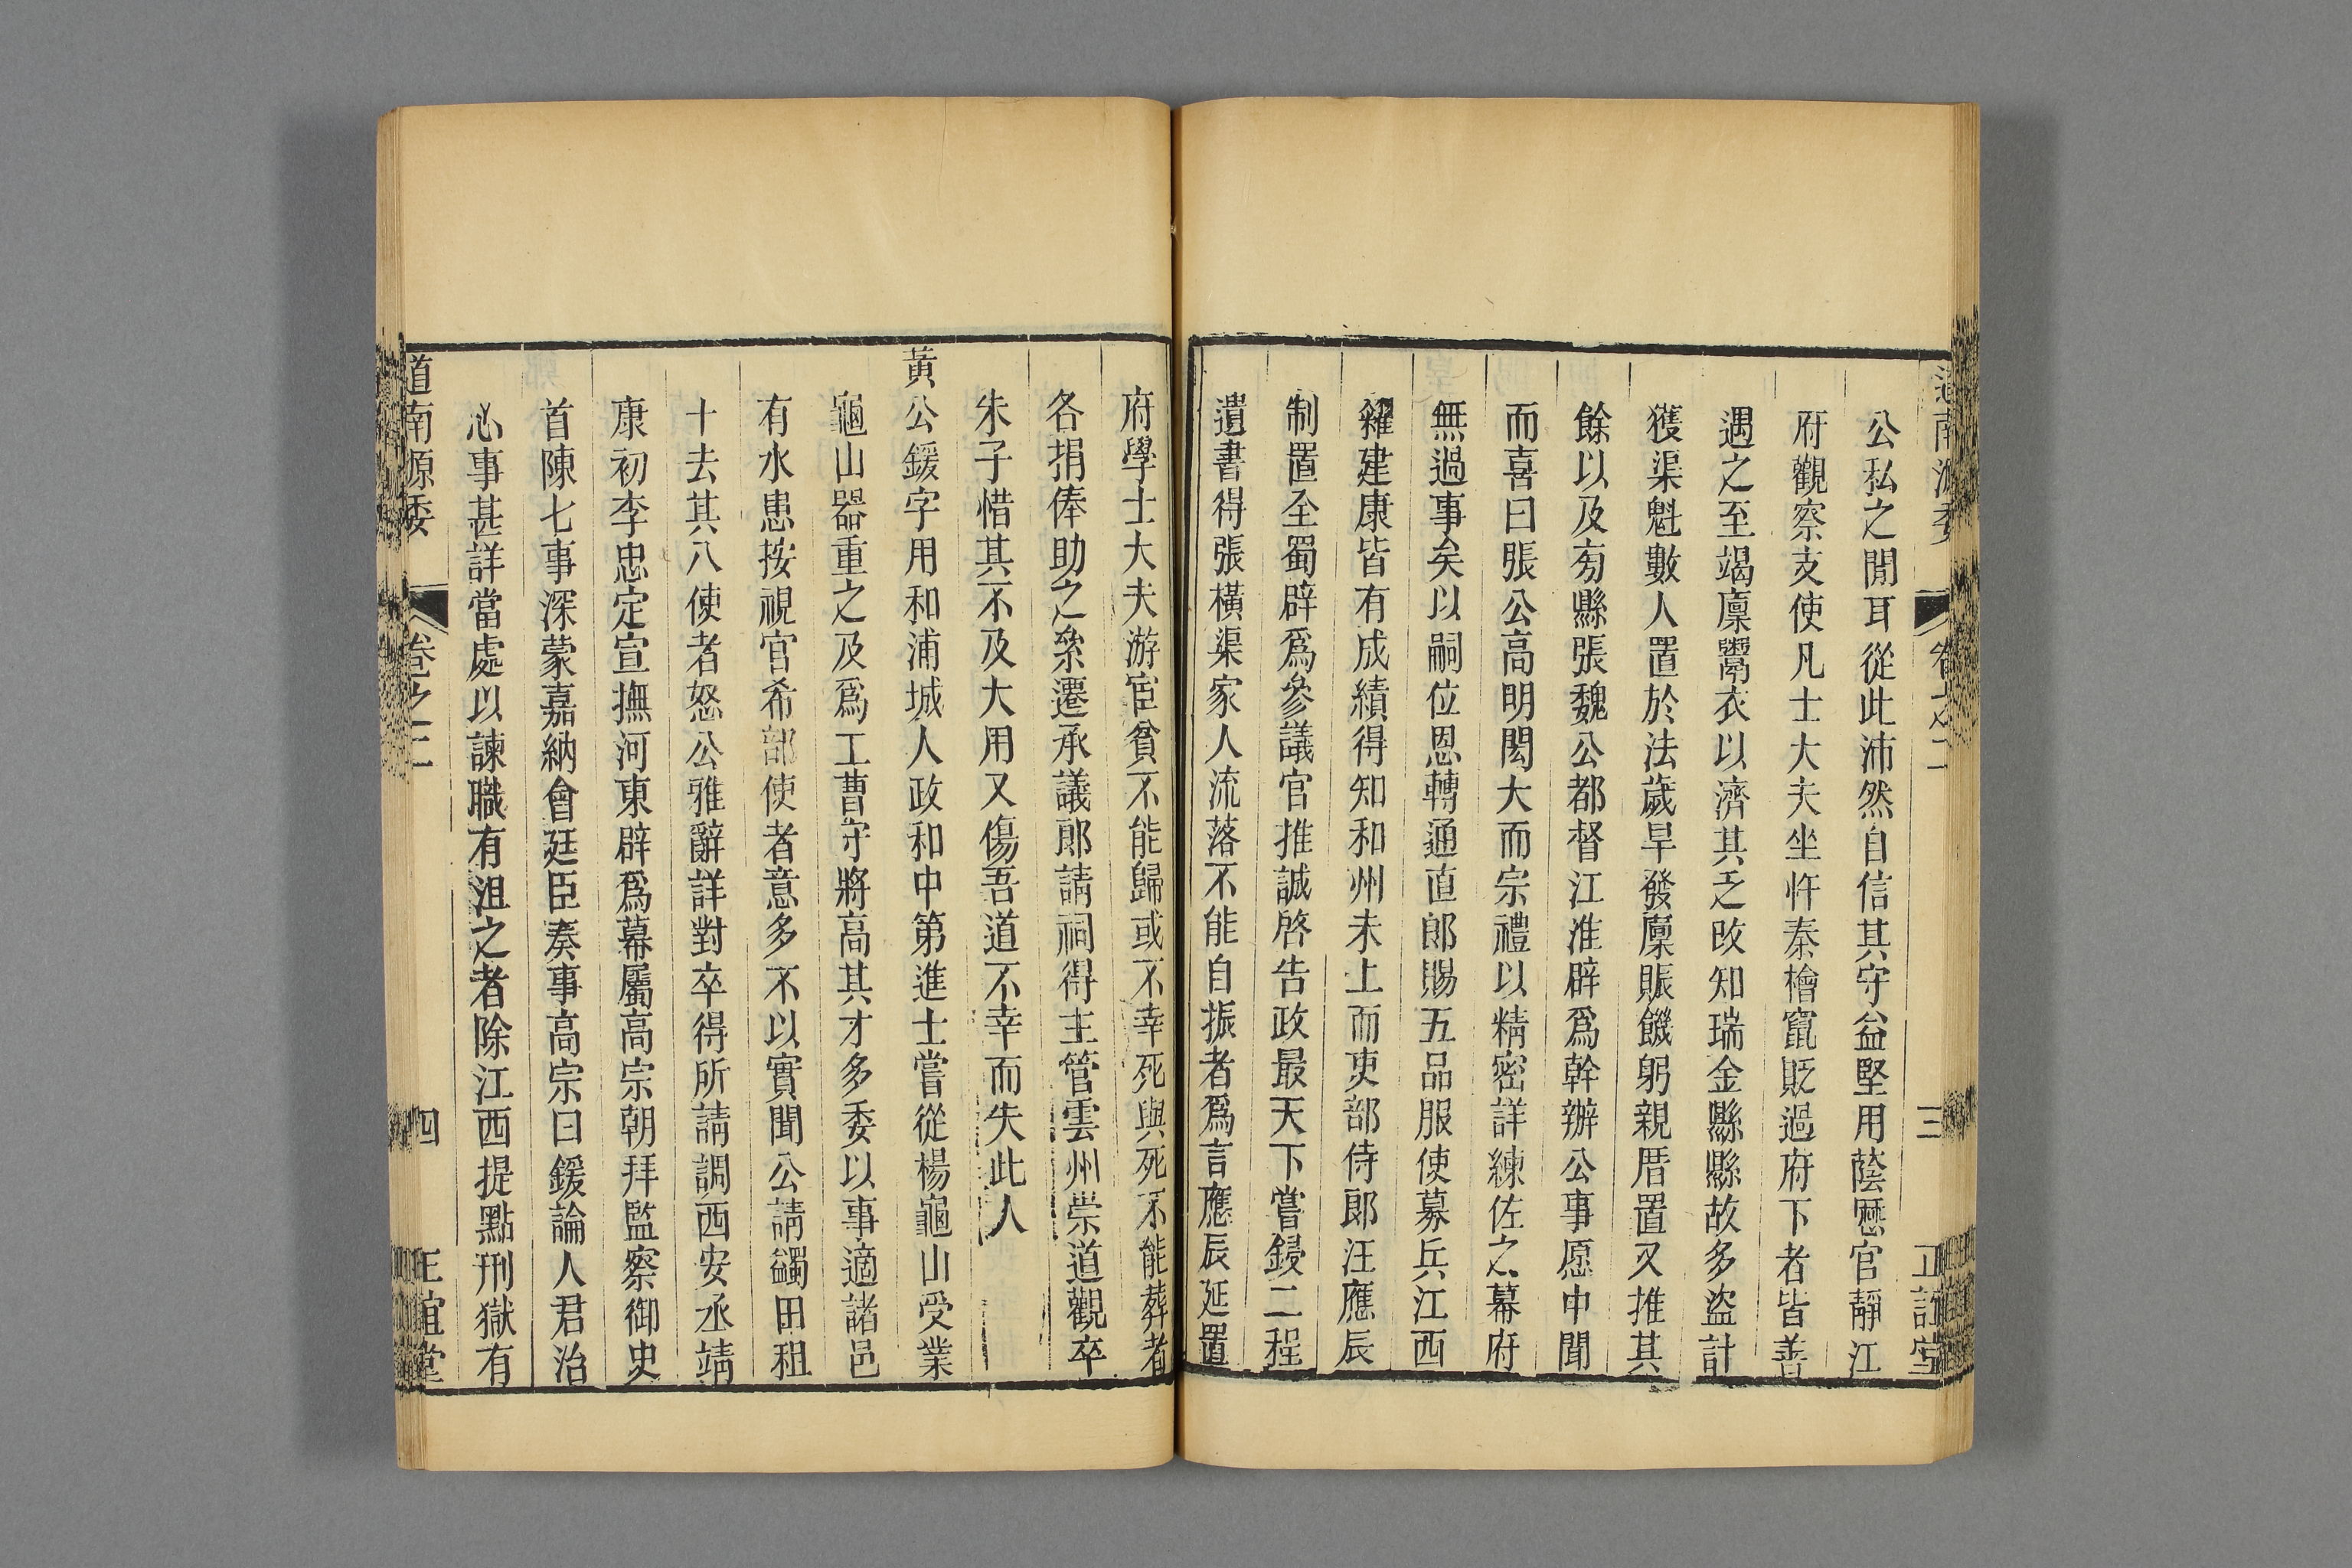 公私之閒耳從此沛然自信其守益堅用蔭歷官靜江
府觀察支使凡士大夫坐忤秦檜竄貶過府下者皆善
遇之至竭廩鬻衣以濟其乏改知瑞金縣縣故多盜計
獲渠魁數人置於法歲旱發廩賑饑躬親厝置又推其
餘以及旁縣張魏公都督江淮辟爲幹辦公事愿中聞
而喜曰張公高明閎大而宗禮以精密詳練佐之幕府
無過事矣以嗣位恩轉通直郎賜五品服使募兵江西
糴建康皆有成績得知和州未上而吏部侍郎汪應辰
制置至蜀辟爲參議官推誠啓告政最天下嘗鋟二程
遺書得張橫渠家人流落不能自振者爲言應辰延置
府學士大夫游宦貧不能歸或不幸死與死不能葬者
各捐俸助之絫遷承議郎請祠得主管雲州崇道觀卒
朱子惜其不及大用又傷吾道不幸而失此人
黃公鍰字用和浦城人政和中第進士嘗從楊龜山受業
龜山器重之及爲工曹守將高其才多委以事適諸邑
有水患按視官希部使者意多不以實聞公請蠲田租
十去其八使者怒公雅辭詳對卒得所請調西安丞靖
康初李忠定宣撫河東辟爲幕屬高宗朝拜監察御史
首陳七事深蒙嘉納會廷臣奏事高宗曰鍰論人君治
心事甚詳當處以諫職有沮之者除江西提點刑獄有
道南源委 卷之二 四 正誼堂